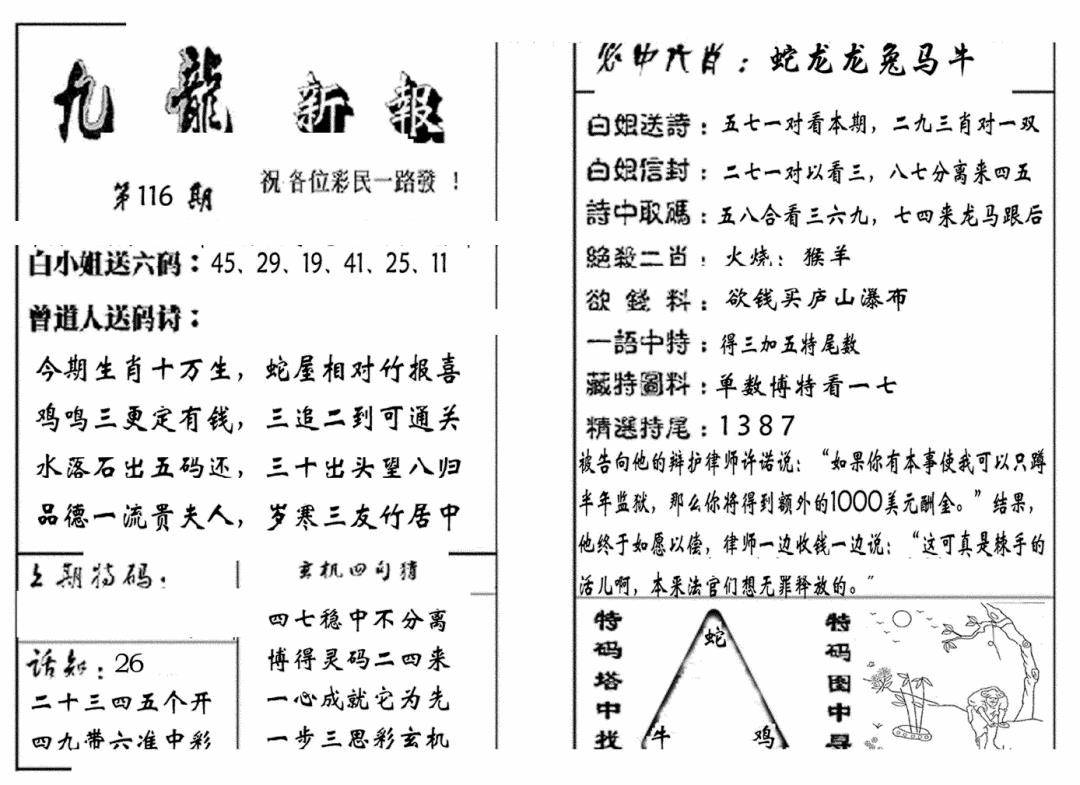 九龍新報
第116期
祝各位彩民一路發！
白小姐送六码：45、29、19、41、25、11
曾道人送码诗：
今期生肖十万生，蛇屋相对竹报喜
鸡鸣三更定有钱，三追二到可通关
水落石出五码还，三十出头望八归
品德一流贵夫人，岁寒三友竹居中
上期特码：
话知：26
二十三四五个开
四九带六准中彩
玄机四句猜
四七稳中不分离
博得灵码二四来
一心成就它为先
一步三思彩玄机
必中六肖：蛇龙龙兔马牛
白姐送詩：五七一对看本期，二九三肖对一双
白姐信封：二七一对以看三，八七分离来四五
詩中取碼：五八合看三六九，七四来龙马跟后
絕殺二肖：火烧：猴羊
欲錢料：欲钱买庐山瀑布
一語中特：得三加五特尾数
藏特圖料：单数博特看一七
精選特尾：1387
被告向他的辩护律师许诺说：“如果你有本事使我可以只蹲
半年监狱，那么你将得到额外的1000美元酬金。”结果，
他终于如愿以偿，律师一边收钱一边说：“这可真是棘手的
活儿啊，本来法官们想无罪释放的。”
特码塔中找
蛇
牛
鸡
特码图中寻